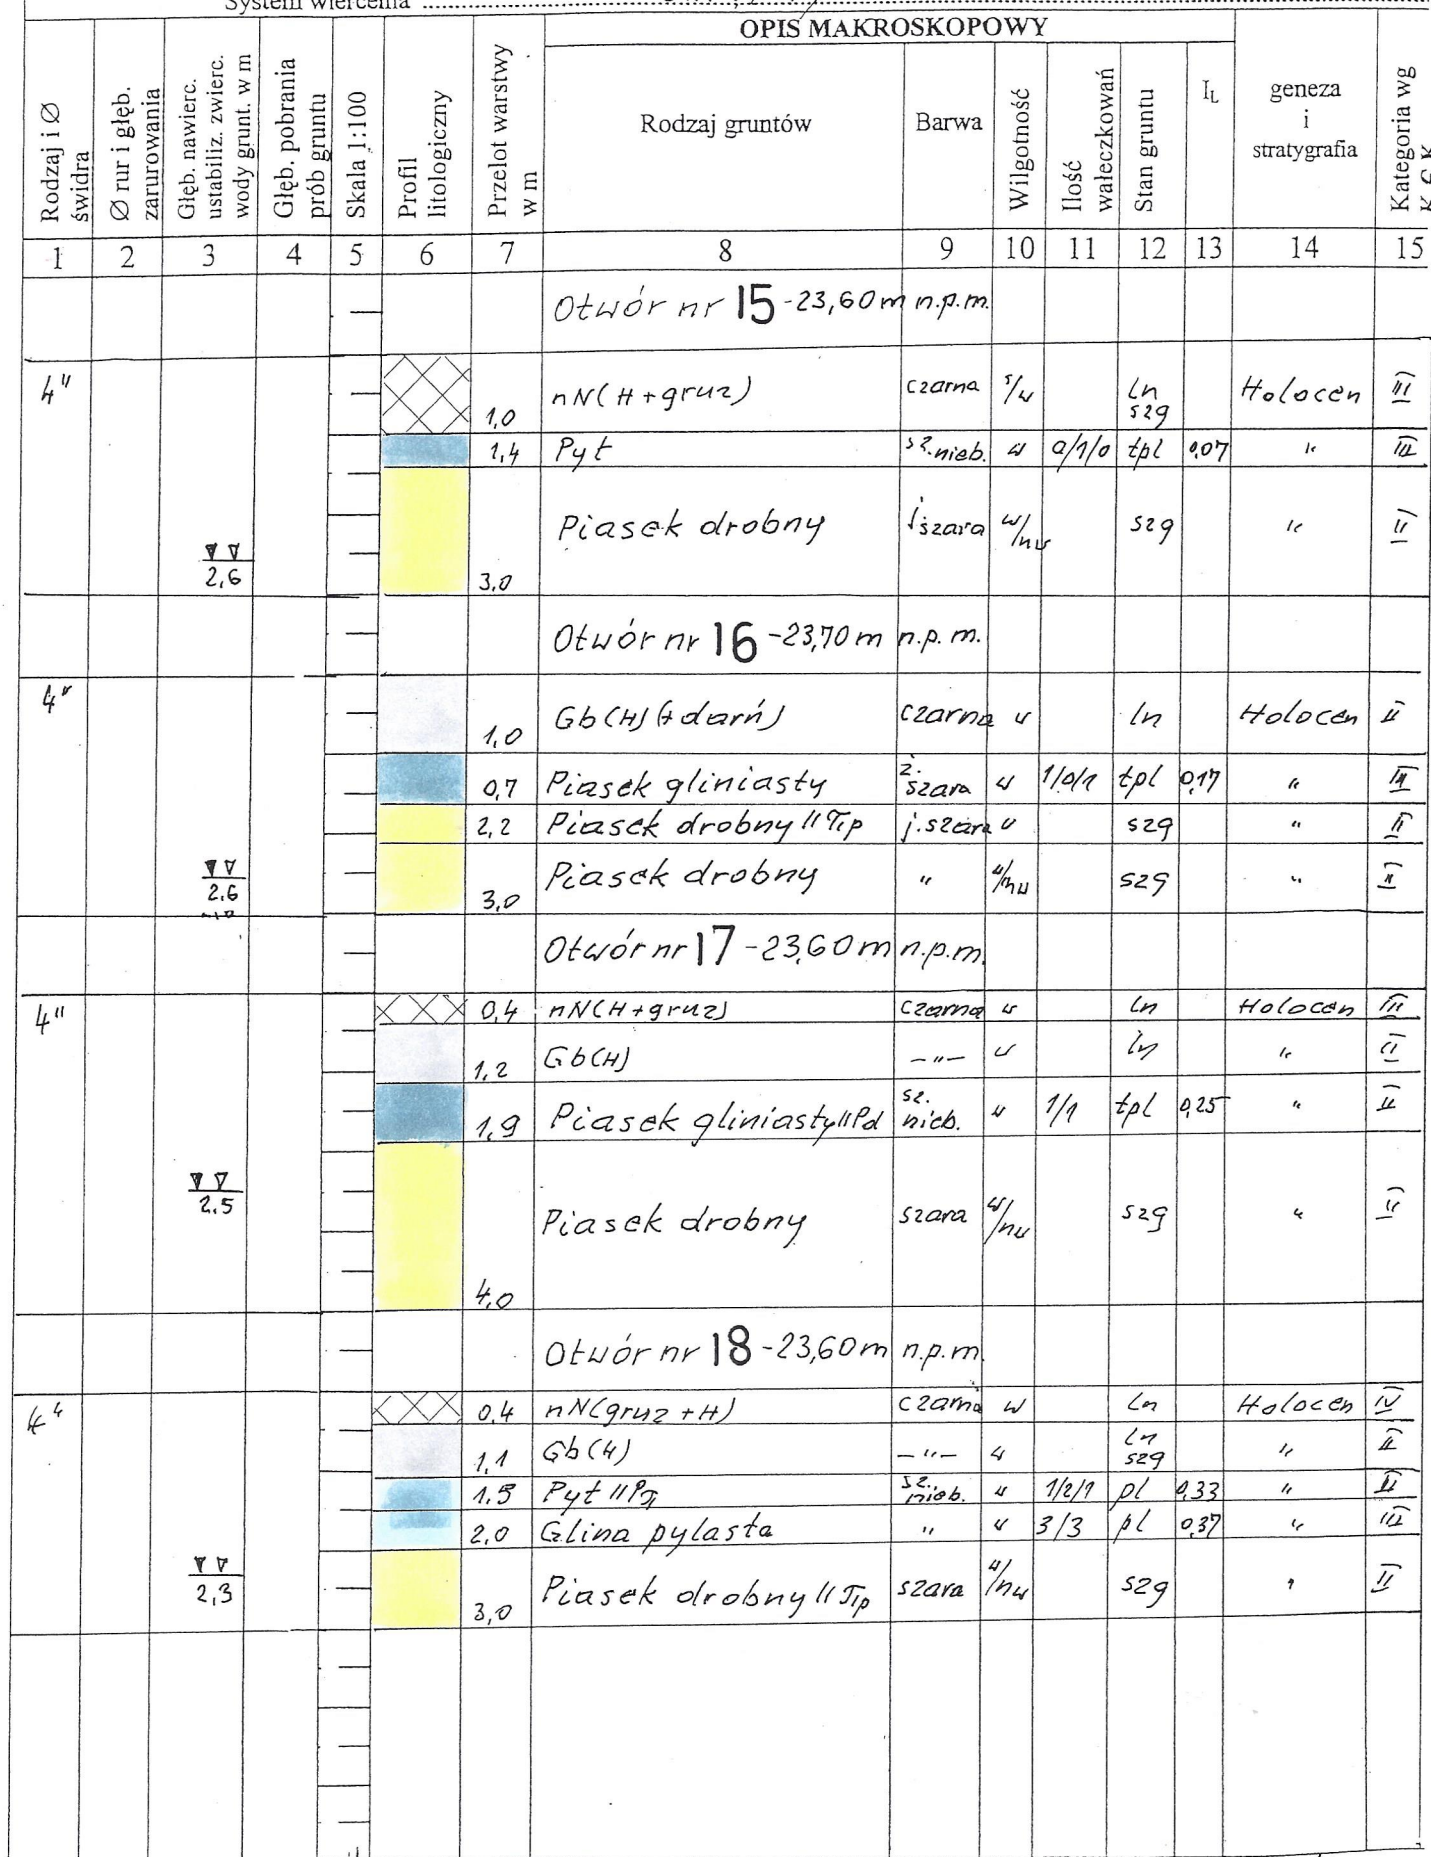 System wiercenia
OPIS MAKROSKOPOWY
Rodzaj i Ø świdra
Ø rur i głęb. zarurowania
Głęb. nawierc. ustabiliz. zwierc. wody grunt. w m
Głęb. pobrania prób gruntu
Skala 1:100
Profil litologiczny
Przelot warstwy w m
Rodzaj gruntów
Barwa
Wilgotność
Ilość wałeczkowań
Stan gruntu
IL
geneza i stratygrafia
Kategoria wg
1 2 3 4 5 6 7 8 9 10 11 12 13 14 15
Otwór nr 15 - 23,60 m n.p.m.
4" 1,0 nN(H+gruz) czarna s/w ln szg Holocen III
1,4 Pył sz.nieb. w 0/1/0 tpl 0,07 " III
2,6 3,0 Piasek drobny j.szara w/nw szg " II
Otwór nr 16 - 23,70 m n.p.m.
4" 1,0 Gb(H)(+darń) czarna w ln Holocen II
0,7 Piasek gliniasty szara w 1/0/1 tpl 0,17 " III
2,2 Piasek drobny // πp j.szara w szg " II
2,6 3,0 Piasek drobny " w/nw szg " II
Otwór nr 17 - 23,60 m n.p.m.
4" 0,4 nN(H+gruz) czarna w ln Holocen III
1,2 Gb(H) -"- w ln " II
1,9 Piasek gliniasty//Pd sz. nieb. w 1/1 tpl 0,25 " II
2.5 4,0 Piasek drobny szara w/nw szg " II
Otwór nr 18 - 23,60 m n.p.m.
4" 0,4 nN(gruz+H) czarna w ln Holocen IV
1,1 Gb(H) -"- w ln szg " II
1,5 Pył // Pπ sz. nieb. w 1/2/1 pl 0,33 " II
2,0 Glina pylasta " w 3/3 pl 0,37 " III
2,3 3,0 Piasek drobny // πp szara w/nw szg " II